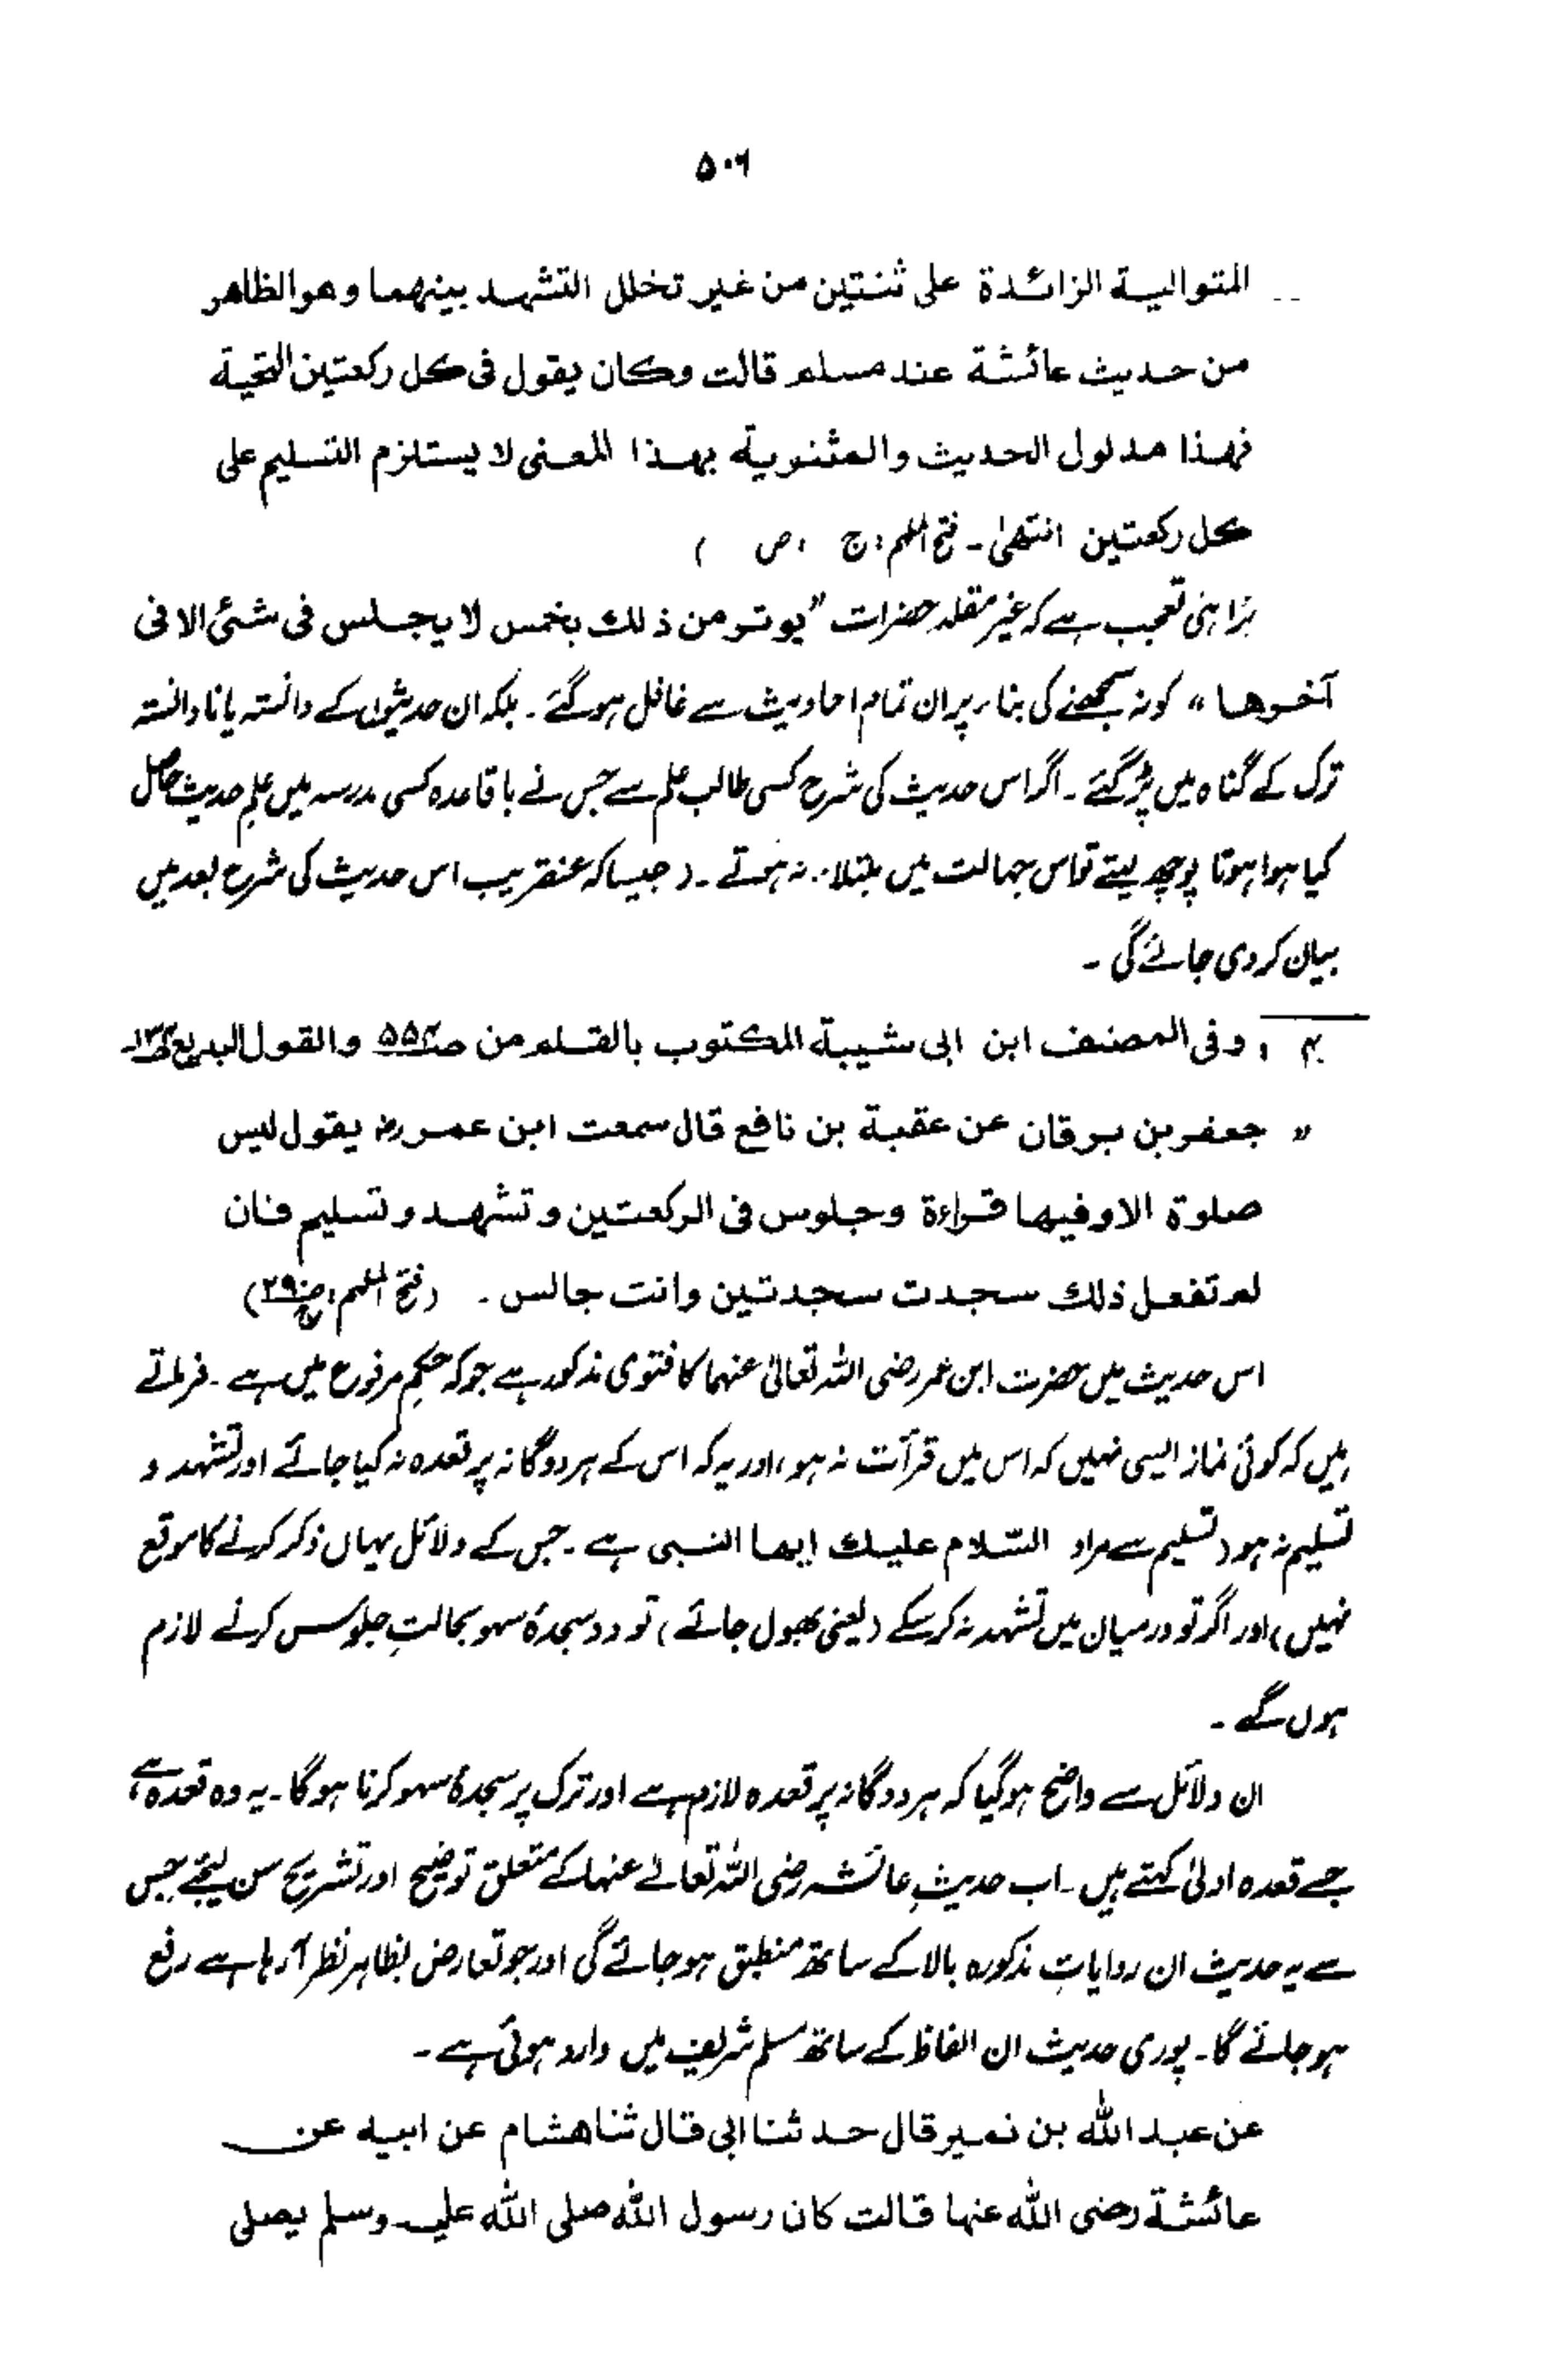 ۵۰۶
المتوالیة الزائدة علی ثنتین من غیر تخلل التشهد بینهما وهو الظاهر
من حدیث عائشة عند مسلم قالت وکان یقول فی کل رکعتین التحیة
فهذا مدلول الحدیث والمثنویة بهذا المعنی لا یستلزم التسلیم علی
کل رکعتین انتهیٰ۔ فتح الملهم : ج ، ص )
بڑا ہی تعجب ہے کہ غیر مقلد حضرات "یوتر من ذلک بخمس لا یجلس فی شئ الا فی
آخرها" کو نہ سمجھنے کی بناء پر ان تمام احادیث سے غافل ہو گئے ۔ بلکہ ان حدیثوں کے دانستہ یا نادانستہ
ترک کے گناہ میں پڑ گئے ۔ اگر اس حدیث کی شرح کسی طالب علم سے جس نے باقاعدہ کسی مدرسہ میں علمِ حدیث حاصل
کیا ہوا ہوتا پوچھ لیتے تو اس جہالت میں مبتلاء نہ ہوتے ۔ ( جیسا کہ عنقریب اس حدیث کی شرح بعد میں
بیان کر دی جائے گی ۔
وفی المصنف ابن ابی شیبة المکتوب بالقلم من والقول البدیع
" جعفر بن برقان عن عقبة بن نافع قال سمعت ابن عمر رض یقول لیس
صلوة الا وفیها قراءة وجلوس فی الرکعتین وتشهد وتسلیم فان
لم تفعل ذلک سجدت سجدتین وانت جالس ۔ (فتح الملهم :
اس حدیث میں حضرت ابن عمر رضی اللہ تعالیٰ عنہما کا فتوی مذکور ہے جو کہ حکمِ مرفوع میں ہے ۔ فرماتے
ہیں کہ کوئی نماز ایسی نہیں کہ اس میں قرآت نہ ہو ، اور یہ کہ اس کے ہر دوگانہ پر قعدہ نہ کیا جائے اور تشہد و
تسلیم نہ ہو ( تسلیم سے مراد السّلام علیک ایها النبی ہے ۔ جس کے دلائل یہاں ذکر کرنے کا موقع
نہیں ) اور اگر تو درمیان میں تشہد نہ کر سکے (یعنی بھول جائے ) تو دو سجدۂ سہو بحالتِ جلوس کرنے لازم
ہوں گے ۔
ان دلائل سے واضح ہو گیا کہ ہر دوگانہ پر قعدہ لازم ہے اور ترک پر سجدۂ سہو کرنا ہوگا ۔ یہ وہ قعدہ ہے ،
جسے قعدہ اولیٰ کہتے ہیں ۔ اب حدیثِ عائشہ رضی اللہ تعالےٰ عنہا کے متعلق توضیح اور تشریح سن لیجئے جس
سے یہ حدیث ان روایاتِ مذکورہ بالا کے ساتھ منطبق ہو جائے گی اور جو تعارض بظاہر نظر آ رہا ہے رفع
ہو جائے گا ۔ پوری حدیث ان الفاظ کے ساتھ مسلم شریف میں وارد ہوئی ہے ۔
عن عبد الله بن نمیر قال حدثنا ابی قال ثنا هشام عن ابیه عن
عائشة رضی الله عنها قالت کان رسول الله صلی الله علیه وسلم یصلی